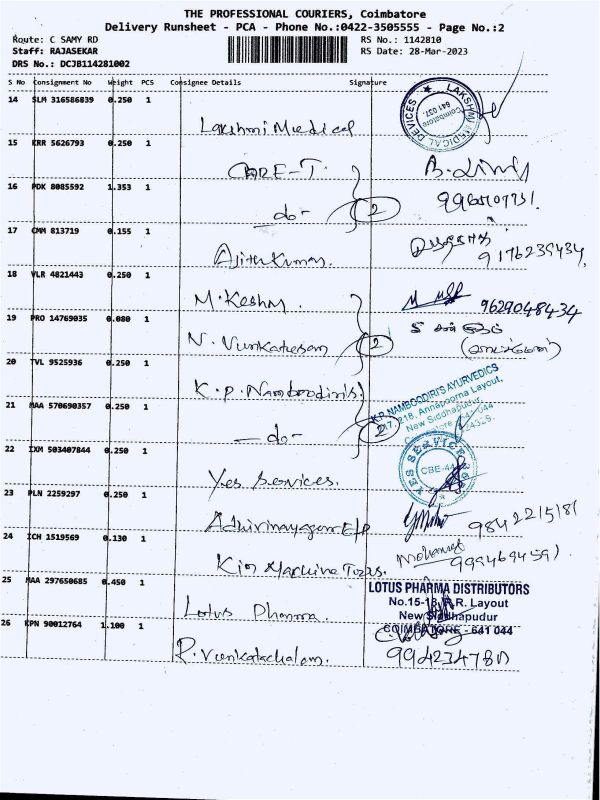 THE PROFESSIONAL COURIERS, Coimbatore
Delivery Runsheet - PCA - Phone No.:0422-3505555 - Page No.:2
Route: C SAMY RD
RS No.: 1142810
Staff: RAJASEKAR
RS Date: 28-Mar-2023
DRS No.: DCJB114281002
S No Consignment No Weight PCS Consignee Details Signature
14 SLM 316586039 0.250 1
Lakshmi Medical
LAKSHMI MEDICAL DEVICES
Coimbatore
641 037.
15 KRR 5626793 0.250 1
CORE-T.
16 PDK 8085592 1.353 1
-do-
2
17 CMM 813719 0.155 1
Ajithkumar.
9176239434
18 VLR 4821443 0.250 1
M. Keshm.
9629048434
19 PRO 14769035 0.080 1
N. Vunkatesan
2
20 TVL 9525936 0.250 1
K. P. Namboodiris
K.P. NAMBOODIRI'S AYURVEDICS
218, Annapoorna Layout,
New Siddhapudur,
21 MAA 570690357 0.250 1
-do-
2
22 IXM 503407844 0.250 1
Yes Services.
YES SERVICES
23 PLN 2259297 0.250 1
9842215181
24 ICH 1519569 0.130 1
Kim Machine Tools.
Mohanraj
9994694591
25 MAA 297650685 0.450 1
Lotus Pharma.
LOTUS PHARMA DISTRIBUTORS
No.15-18, R.R. Layout
New Siddhapudur
COIMBATORE - 641 044
26 KPN 90012764 1.100 1
P. Venkatachalam.
994234780